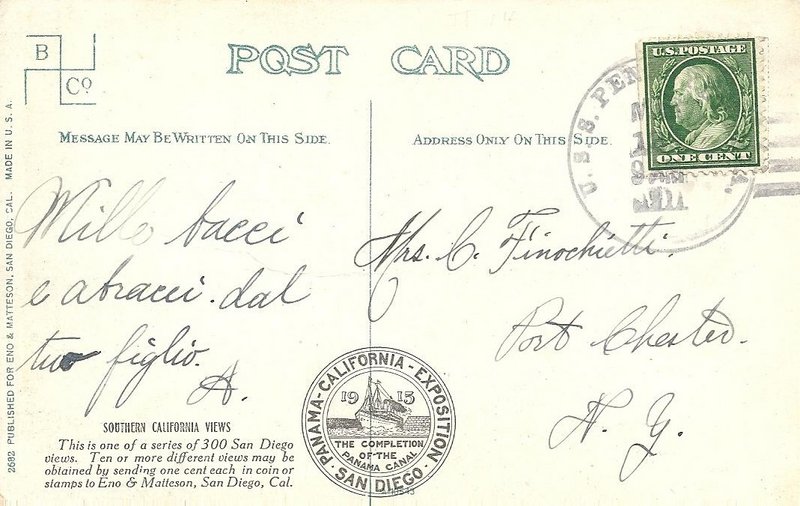 B
Co
POST CARD
MESSAGE MAY BE WRITTEN ON THIS SIDE.
ADDRESS ONLY ON THIS SIDE.
U.S. POSTAGE
ONE CENT
U. S. S. PEN
Mille bacci
e abracci. dal
tuo figlio.
A.
Mrs. C. Finochietti.
Port Chester.
N. Y.
SOUTHERN CALIFORNIA VIEWS
This is one of a series of 300 San Diego
views. Ten or more different views may be
obtained by sending one cent each in coin or
stamps to Eno & Matteson, San Diego, Cal.
PANAMA-CALIFORNIA-EXPOSITION
1915
THE COMPLETION
OF THE
PANAMA CANAL
SAN DIEGO
2582 PUBLISHED FOR ENO & MATTESON, SAN DIEGO, CAL. MADE IN U. S. A.